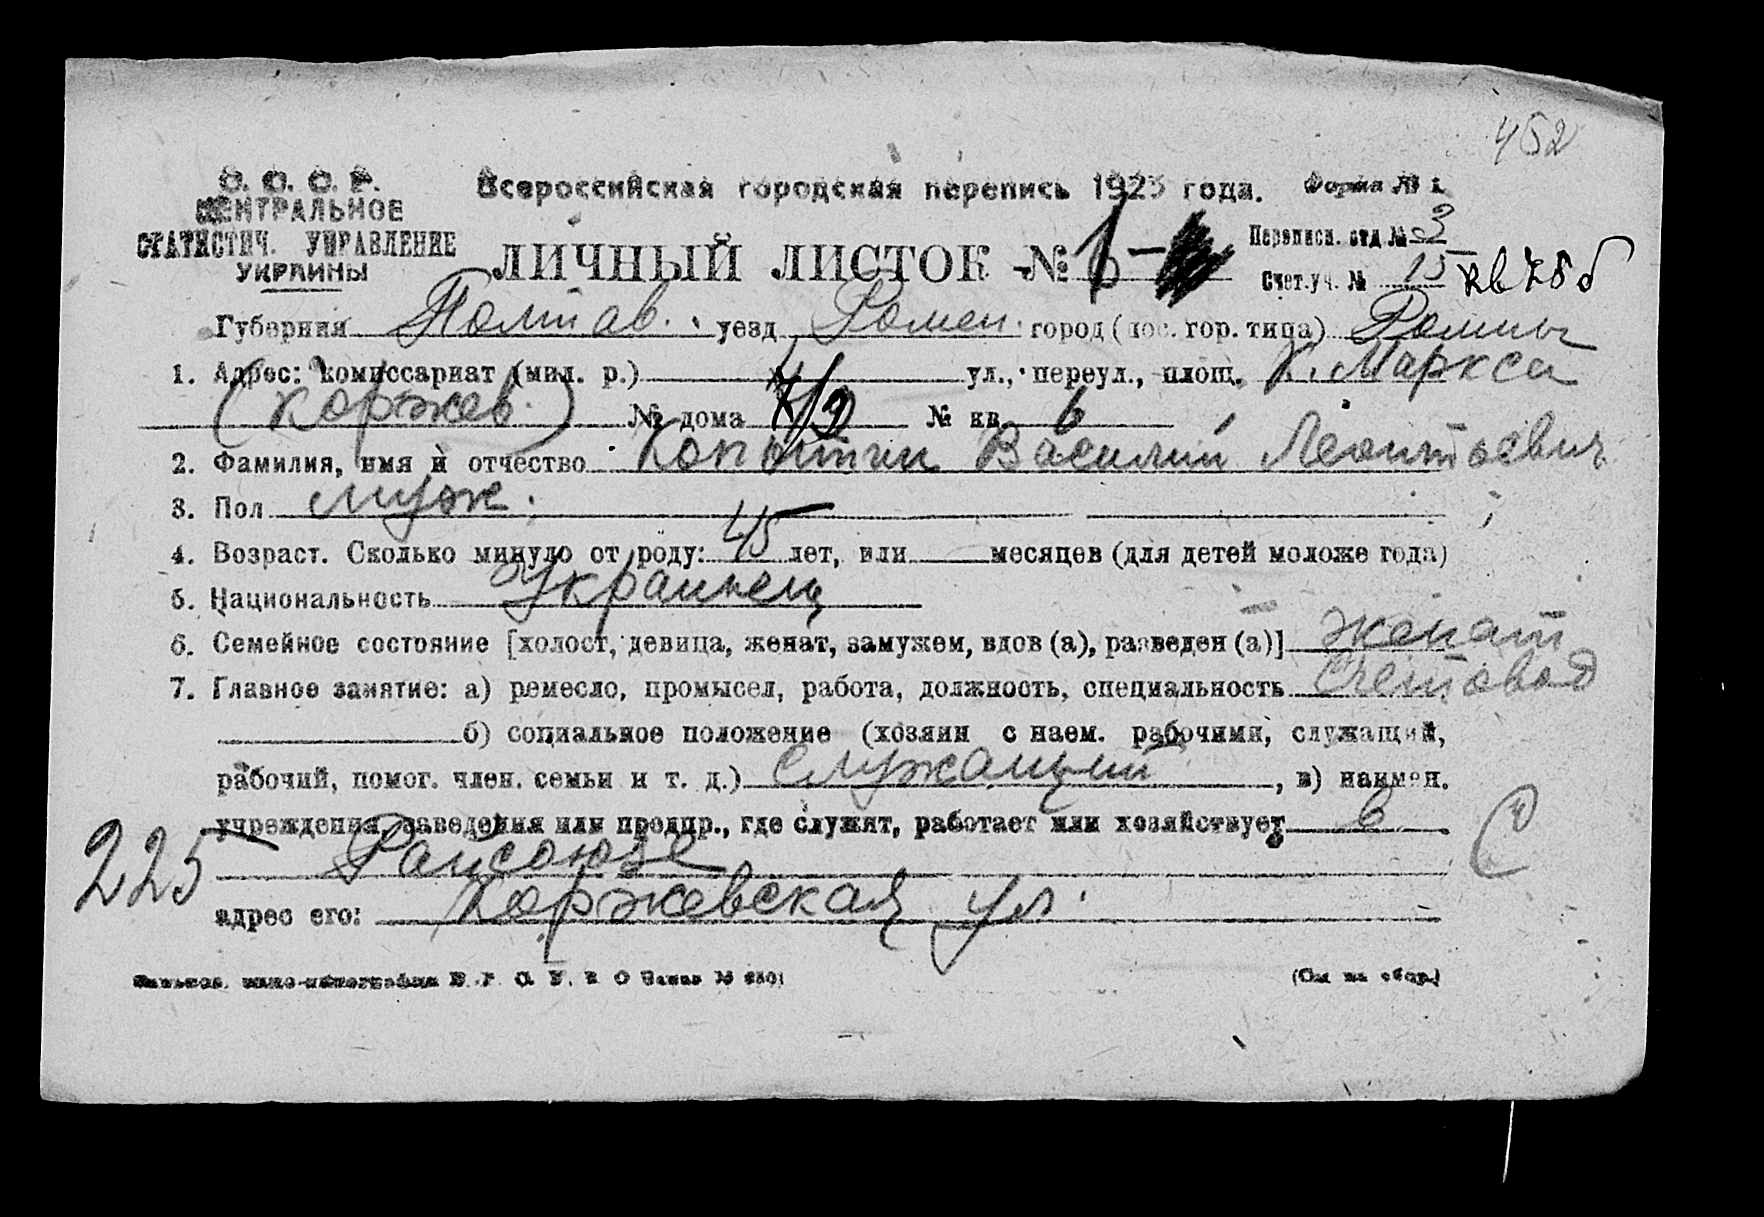 452
С. С. С. Р.
ЦЕНТРАЛЬНОЕ
СТАТИСТИЧ. УПРАВЛЕНИЕ
УКРАИНЫ
Всероссийская городская перепись 1923 года. Форма № 1.
Переписн. отд. № 3
ЛИЧНЫЙ ЛИСТОК №
Счет. уч. № 15
Губерния Полтав. уезд Ромен. город (пос. гор. типа) Ромны
1. Адрес: комиссариат (мил. р.) ул., переул., площ. К. Маркса
(Коржев.) № дома № кв. 6
2. Фамилия, имя и отчество Копытин Василий Леонтьевич
3. Пол муж.
4. Возраст. Сколько минуло от роду: 45 лет, или месяцев (для детей моложе года)
5. Национальность Украинец
6. Семейное состояние [холост, девица, женат, замужем, вдов (а), разведен (а)] женат
7. Главное занятие: а) ремесло, промысел, работа, должность, специальность Счетовод
б) социальное положение (хозяин с наем. рабочими, служащий,
рабочий, помог. член. семьи и т. д.) Служащий, в) наимен.
учреждения, заведения или предпр., где служит, работает или хозяйствует в
225 Райсоюзе
С
адрес его: Коржевская ул.
(См на обор.)